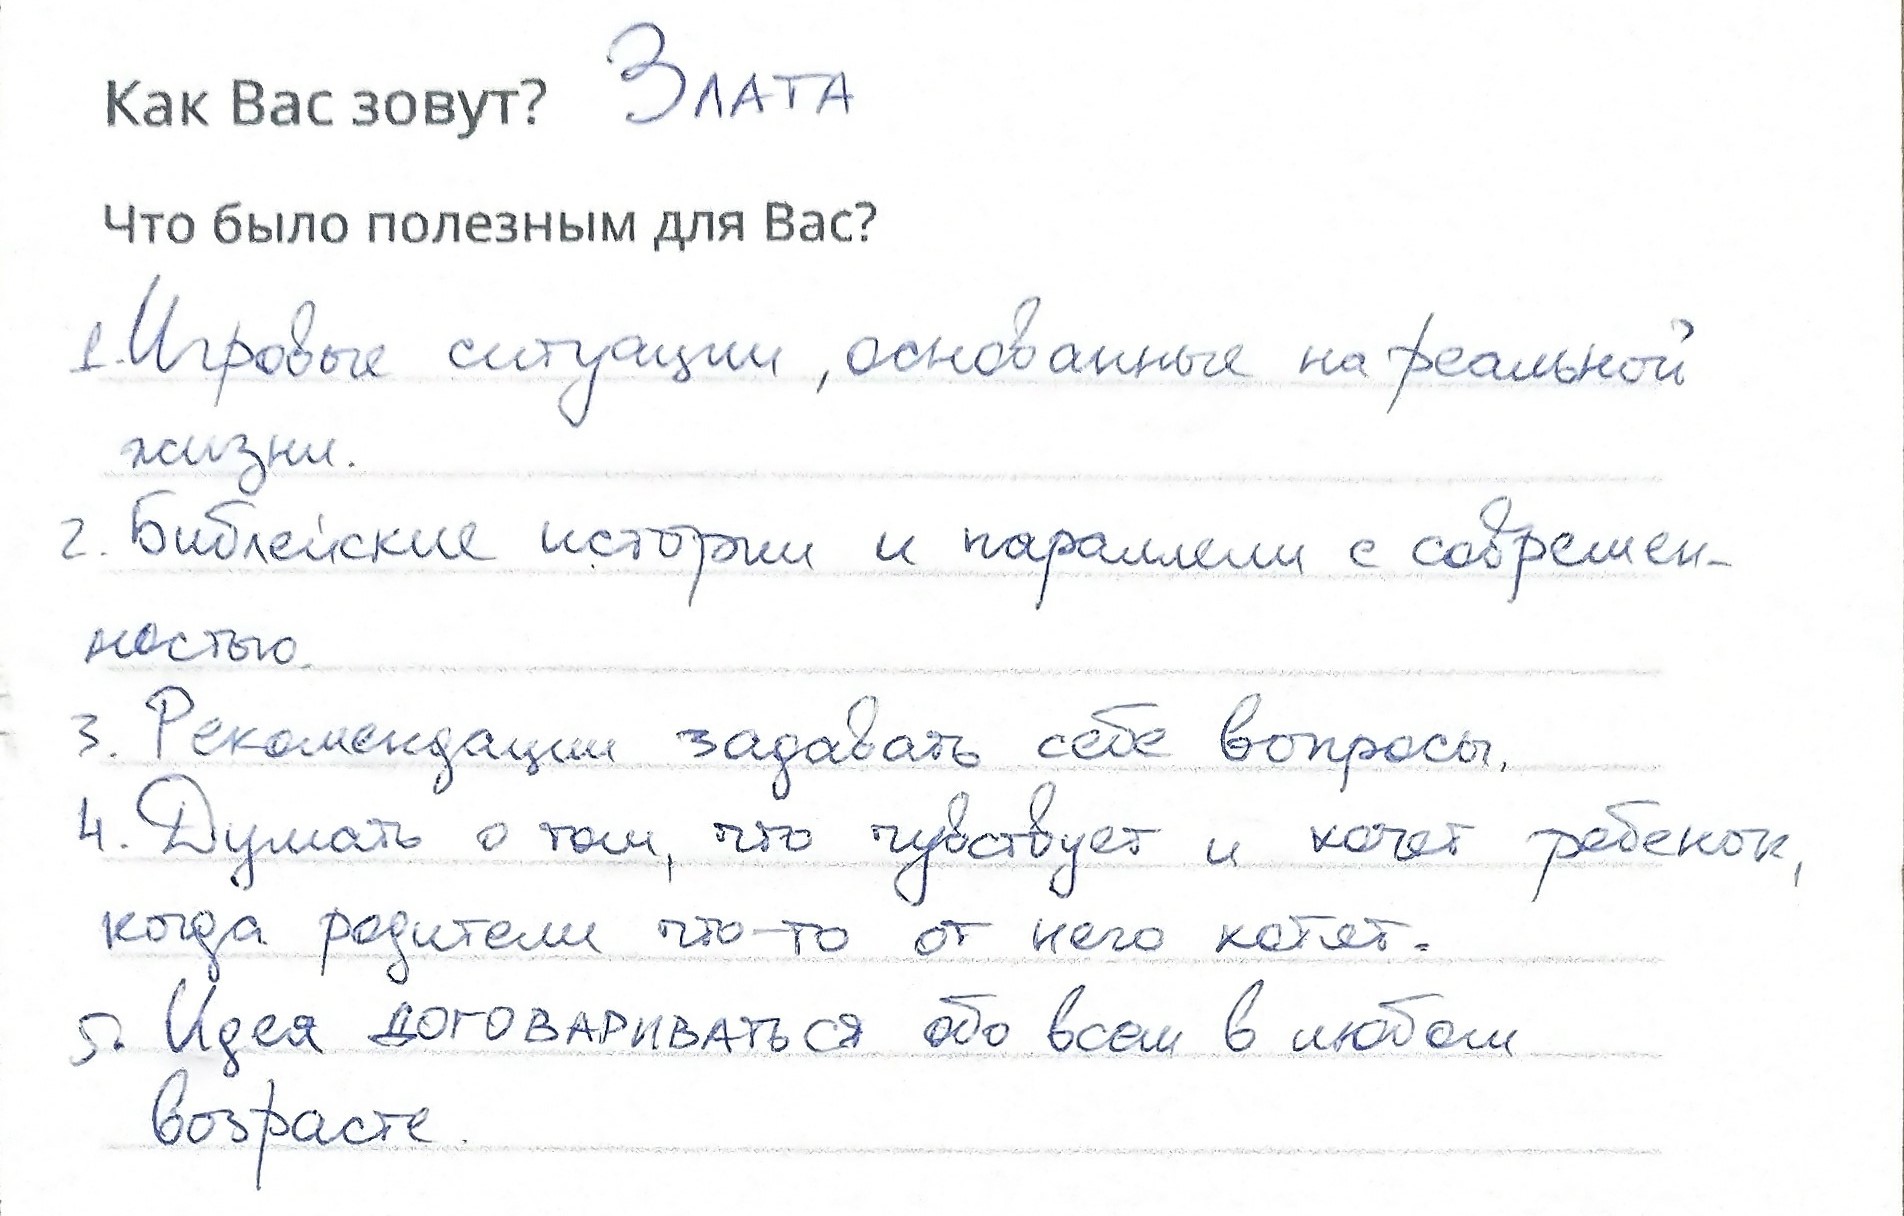 Как Вас зовут? Злата
Что было полезным для Вас?
1. Игровые ситуации, основанные на реальной
жизни.
2. Библейские истории и параллели с современ-
ностью.
3. Рекомендации задавать себе вопросы.
4. Думать о том, что чувствует и хочет ребенок,
когда родители что-то от него хотят.
5. Идея договариваться обо всем в любом
возрасте.